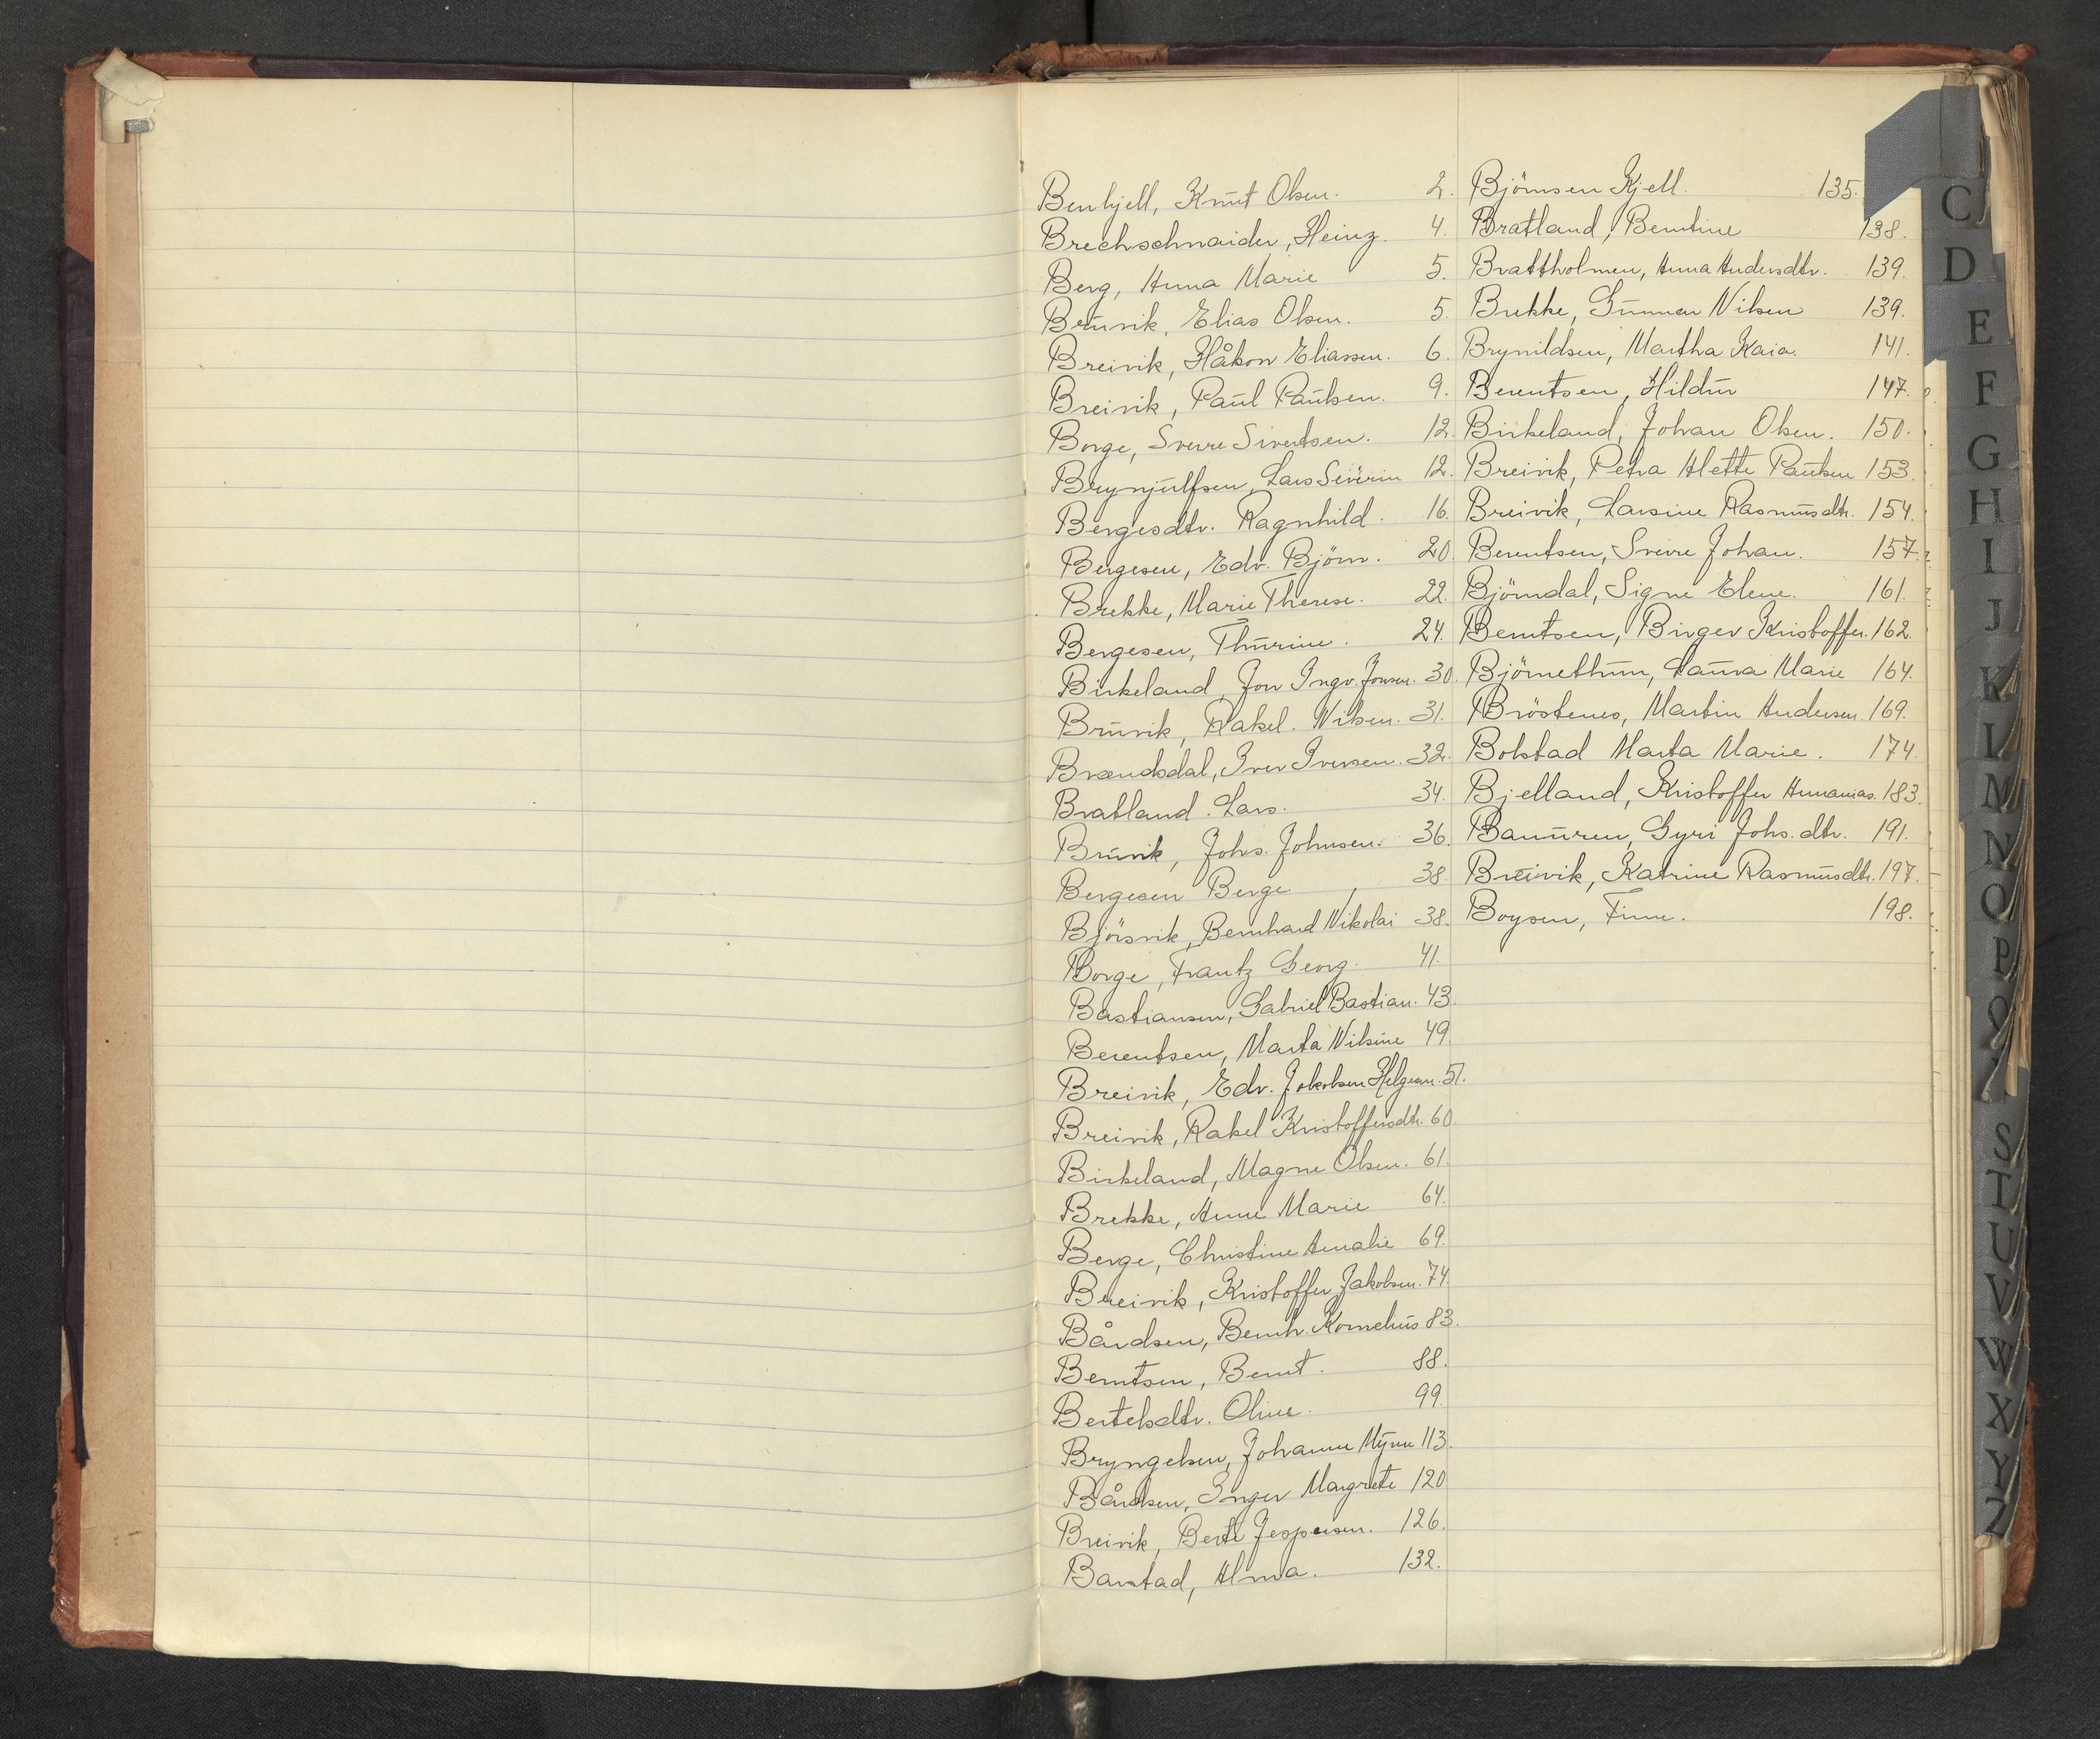 Benhjell, Knut Olsen. 2.
Brechschnaider, Heinz. 4.
Berg, Anna Marie 5.
Bruvik, Elias Olsen. 5.
Breivik, Håkon Eliassen. 6.
Breivik, Paul Paulsen. 9.
Borge, Sverre Sivertsen. 12.
Brynjulfsen, Lars Severin 12.
Bergesdtr. Ragnhild. 16.
Bergesen, Edv. Björn. 20.
Brekke, Marie Therese. 22.
Bergesen, Thurine. 24.
Birkeland, Jon Ingv. Jonsen. 30.
Bruvik, Rakel. Nilsen. 31.
Brændsdal, Iver Iversen. 32.
Bratland. Lars. 34.
Bruvik, Johs. Johnsen. 36.
Bergesen Berge 38
Björsvik, Bernhard Nikolai 38.
Borge, Frantz Georg. 41.
Bastiansen, Gabriel Bastian. 43.
Berentsen, Marta Nilsine 49.
Breivik, Edv. Jakobsen Helgesen. 51.
Breivik, Rakel Kristoffersdtr. 60.
Birkeland, Magne Olsen. 61.
Brekke, Anne Marie 64.
Berge, Christine Amalie 69.
Breivik, Kristoffer Jakobsen. 74.
Bårdsen, Bernh. Kornelius 83.
Berntsen, Bernt. 88.
Bertelsdtr. Oline. 99.
Bryngelsen, Johanne 113.
Bårdsen, Inger Margrete 120
Breivik, Berte Jespersen. 126.
Barstad, Alma. 132.
Björnsen Kjell. 135.
Bratland, Berntine 138.
Brattholmen, Anna Andersdtr. 139.
Brekke, Gunnar Nilsen 139.
Brynildsen, Martha Kaia. 141.
Berentsen, Hildur 147.
Birkeland, Johan Olsen. 150.
Breivik, Petra Alette Paulsen 153.
Breivik, Larsine Rasmusdtr. 154.
Berentsen, Sverre Johan. 157.
Björndal, Signe Elene. 161.
Berntsen, Birger Kristoffer. 162.
Björnethun, Laura Marie 164.
Bröstenes, Martin Andersen. 169.
Bolstad Marta Marie. 174.
Bjelland, Kristoffer Annanias. 183.
Banuren, Gyri Johs. dtr. 191.
Breivik, Katrine Rasmusdtr. 197.
Boysen, Finn. 198.
C
D
E
F
G
H
I
J
K
L
M
N
O
P
Q
S
T
U
V
W
X
Y
Z